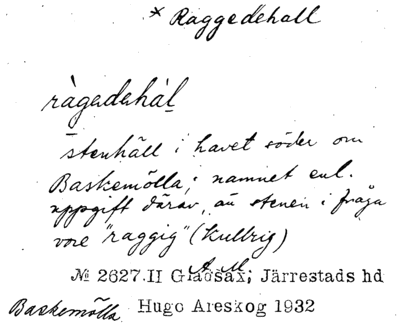 * Raggedehall
ràgadahàl
stenhäll i havet söder om
Baskemölla; namnet enl.
uppgift därav, att stenen i fråga
vore "raggig" (kullrig)
№ 2627.II Gladsax; Järrestads hd
Baskemölla Hugo Areskog 1932